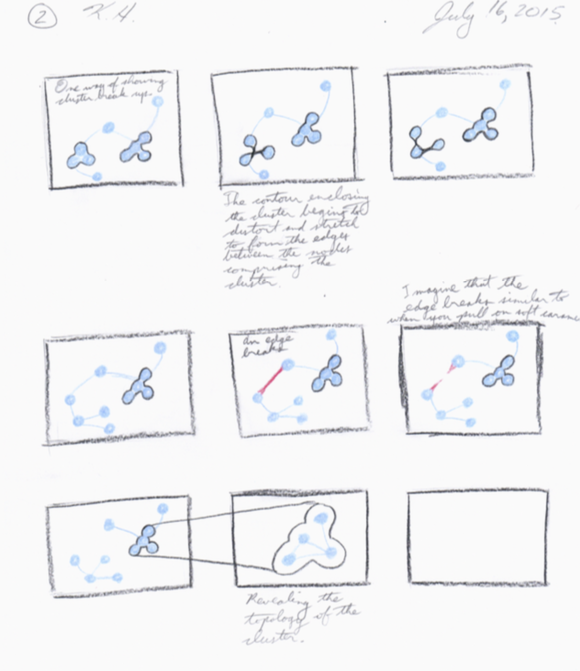 2
K.H.
July 16, 2015
One way of showing
cluster break up.
The contour enclosing
the cluster begins to
distort and stretch
to form the edges
between the nodes
comprising the
cluster.
I imagine that the
edge breaks similar to
when you pull on soft caram
an edge
breaks
Revealing the
topology of the
cluster.